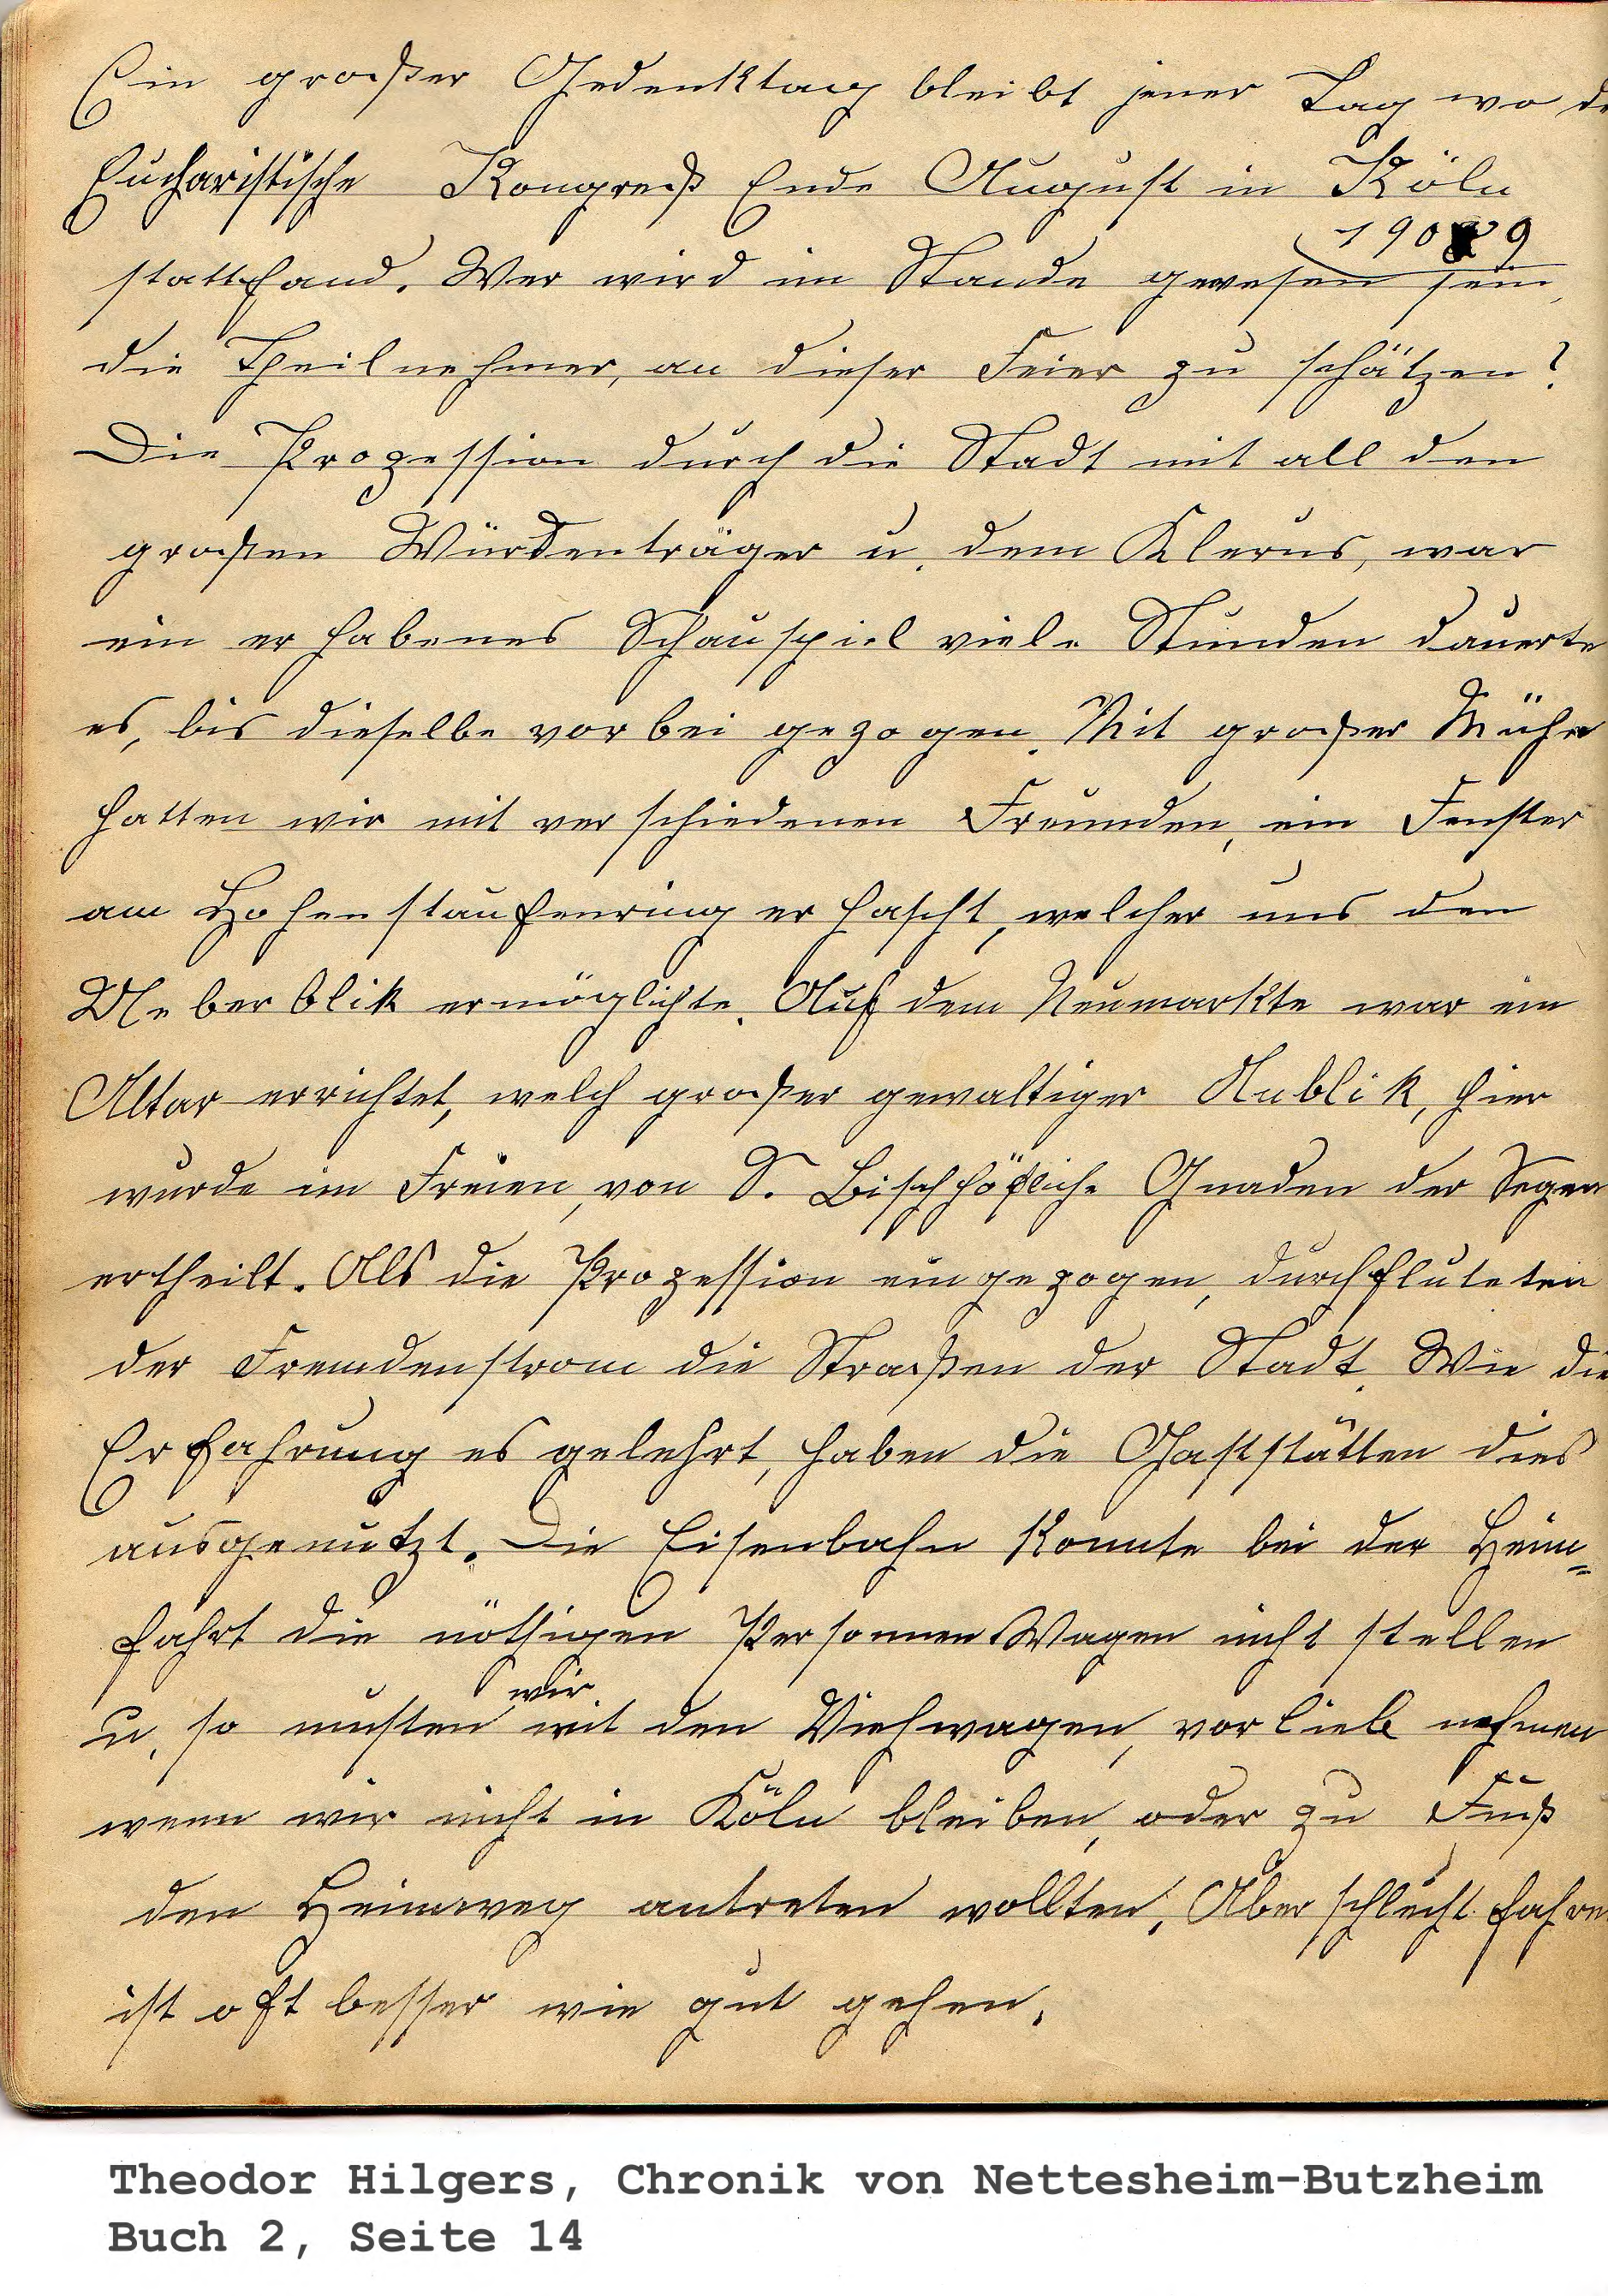 Ein großer Gedenktag bleibt jener Tag wo de
Eucharistische Kongreß Ende August in Köln
1909
stattfand. Wer wird im Stande gewesen sein,
die Theilnehmer, an dieser Feier zu schätzen?
Die Prozession durch die Stadt mit all den
großen Würdenträger u. dem Klerus, war
ein erhabenes Schauspiel viele Stunden dauerte
es, bis dieselbe vorbei gezogen. Mit großer Mühe
hatten wir mit verschiedenen Freunden, ein Fenster
am Hohenstaufenring erhascht, welcher uns den
Ueberblik ermöglichte. Auf dem Neumarkte war ein
Altar errichtet, welch großer gewaltiger Anblik, hier
wurde im Freien, von S. Bischhöfliche Gnaden der Segen
ertheilt. Als die Prozession eingezogen, durchfluteten
der Fremdenstrom die Straßen der Stadt. Wie die
Erfahrung es gelehrt, haben die Gaststätten dies
ausgenutzt. Die Eisenbahn konnte bei der Heim=
fahrt die nöthigen Personnen Wagen nicht stellen
wir
u. so musten mit den Viehwagen, vorlieb nehmen
wenn wir nicht in Köln bleiben, oder zu Fuß
den Heimweg antreten wollten. Aber schlecht fahre
ist oft besser wie gut gehen.
Theodor Hilgers, Chronik von Nettesheim-Butzheim
Buch 2, Seite 14